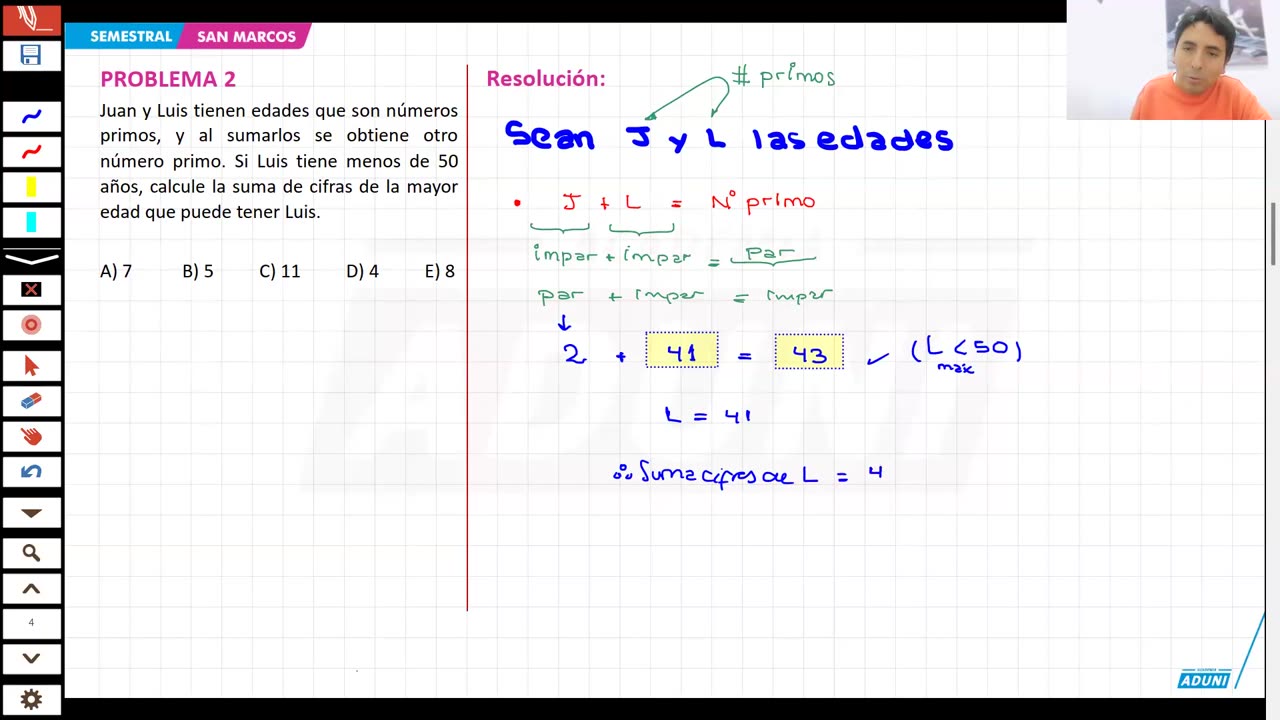 SEMESTRAL SAN MARCOS
PROBLEMA 2
Juan y Luis tienen edades que son números
primos, y al sumarlos se obtiene otro
número primo. Si Luis tiene menos de 50
años, calcule la suma de cifras de la mayor
edad que puede tener Luis.
A) 7 B) 5 C) 11 D) 4 E) 8
Resolución:
# primos
Sean J y L las edades
• J + L = N° primo
impar + impar = par
par + impar = impar
2 + 41 = 43 ✓ (L < 50)
máx
L = 41
∴ Suma cifras de L = 4
4
ADUNI
ACADEMIA
ADUNI